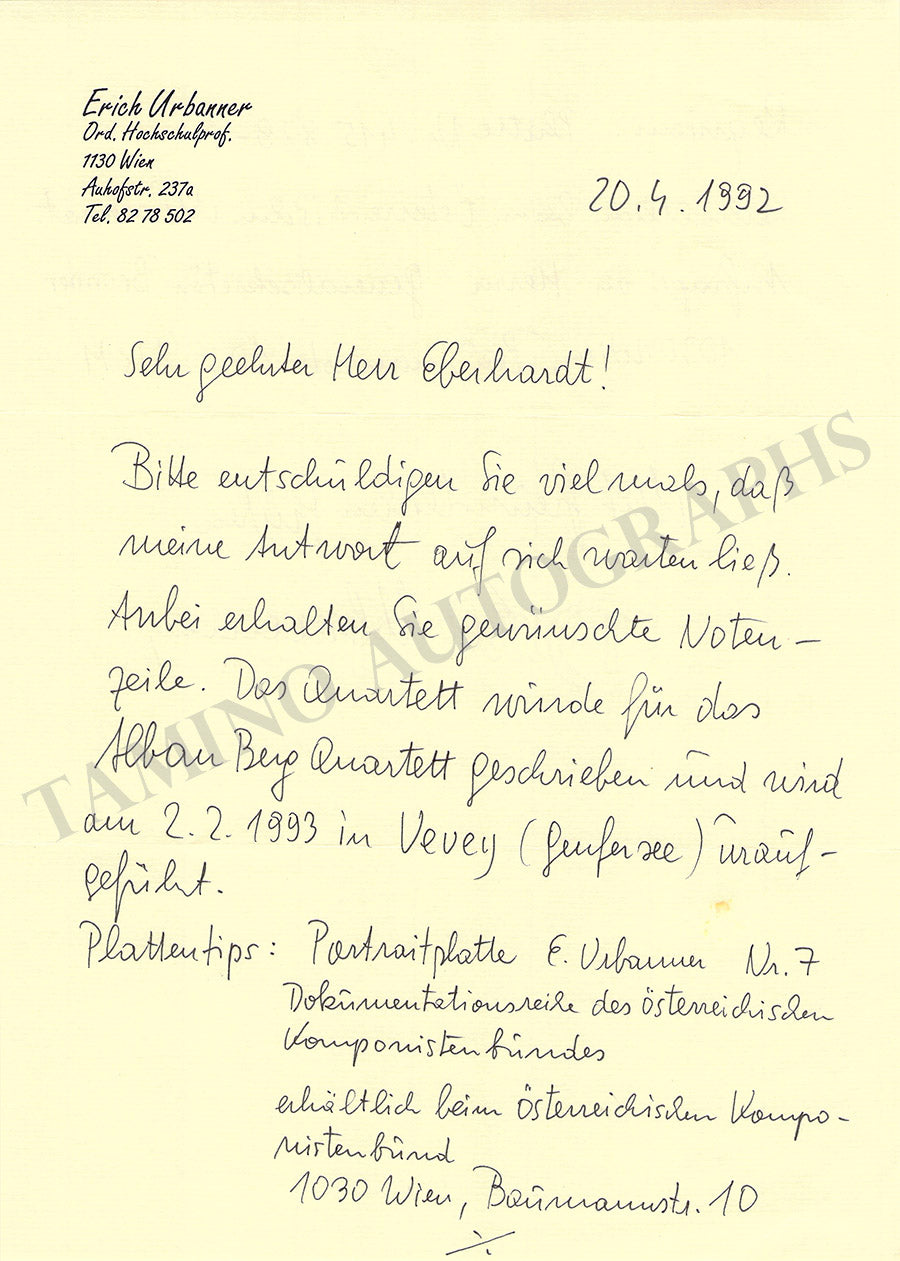 Erich Urbanner
Ord. Hochschulprof.
1130 Wien
Auhofstr. 237a
Tel. 82 78 502
20.4.1992
Sehr geehrter Herr Eberhardt!
Bitte entschuldigen Sie vielmals, daß
meine Antwort auf sich warten ließ.
Anbei erhalten Sie gewünschte Noten-
zeile. Das Quartett wurde für das
Alban Berg Quartett geschrieben und wird
am 2.2.1993 in Vevey (Genfersee) urauf-
geführt.
Plattentips: Portraitplatte E. Urbanner Nr. 7
Dokumentationsreihe des österreichischen
Komponistenbundes
erhältlich beim Österreichischen Kompo-
nistenbund
1030 Wien, Baumannstr. 10
./.
TAMINO AUTOGRAPHS